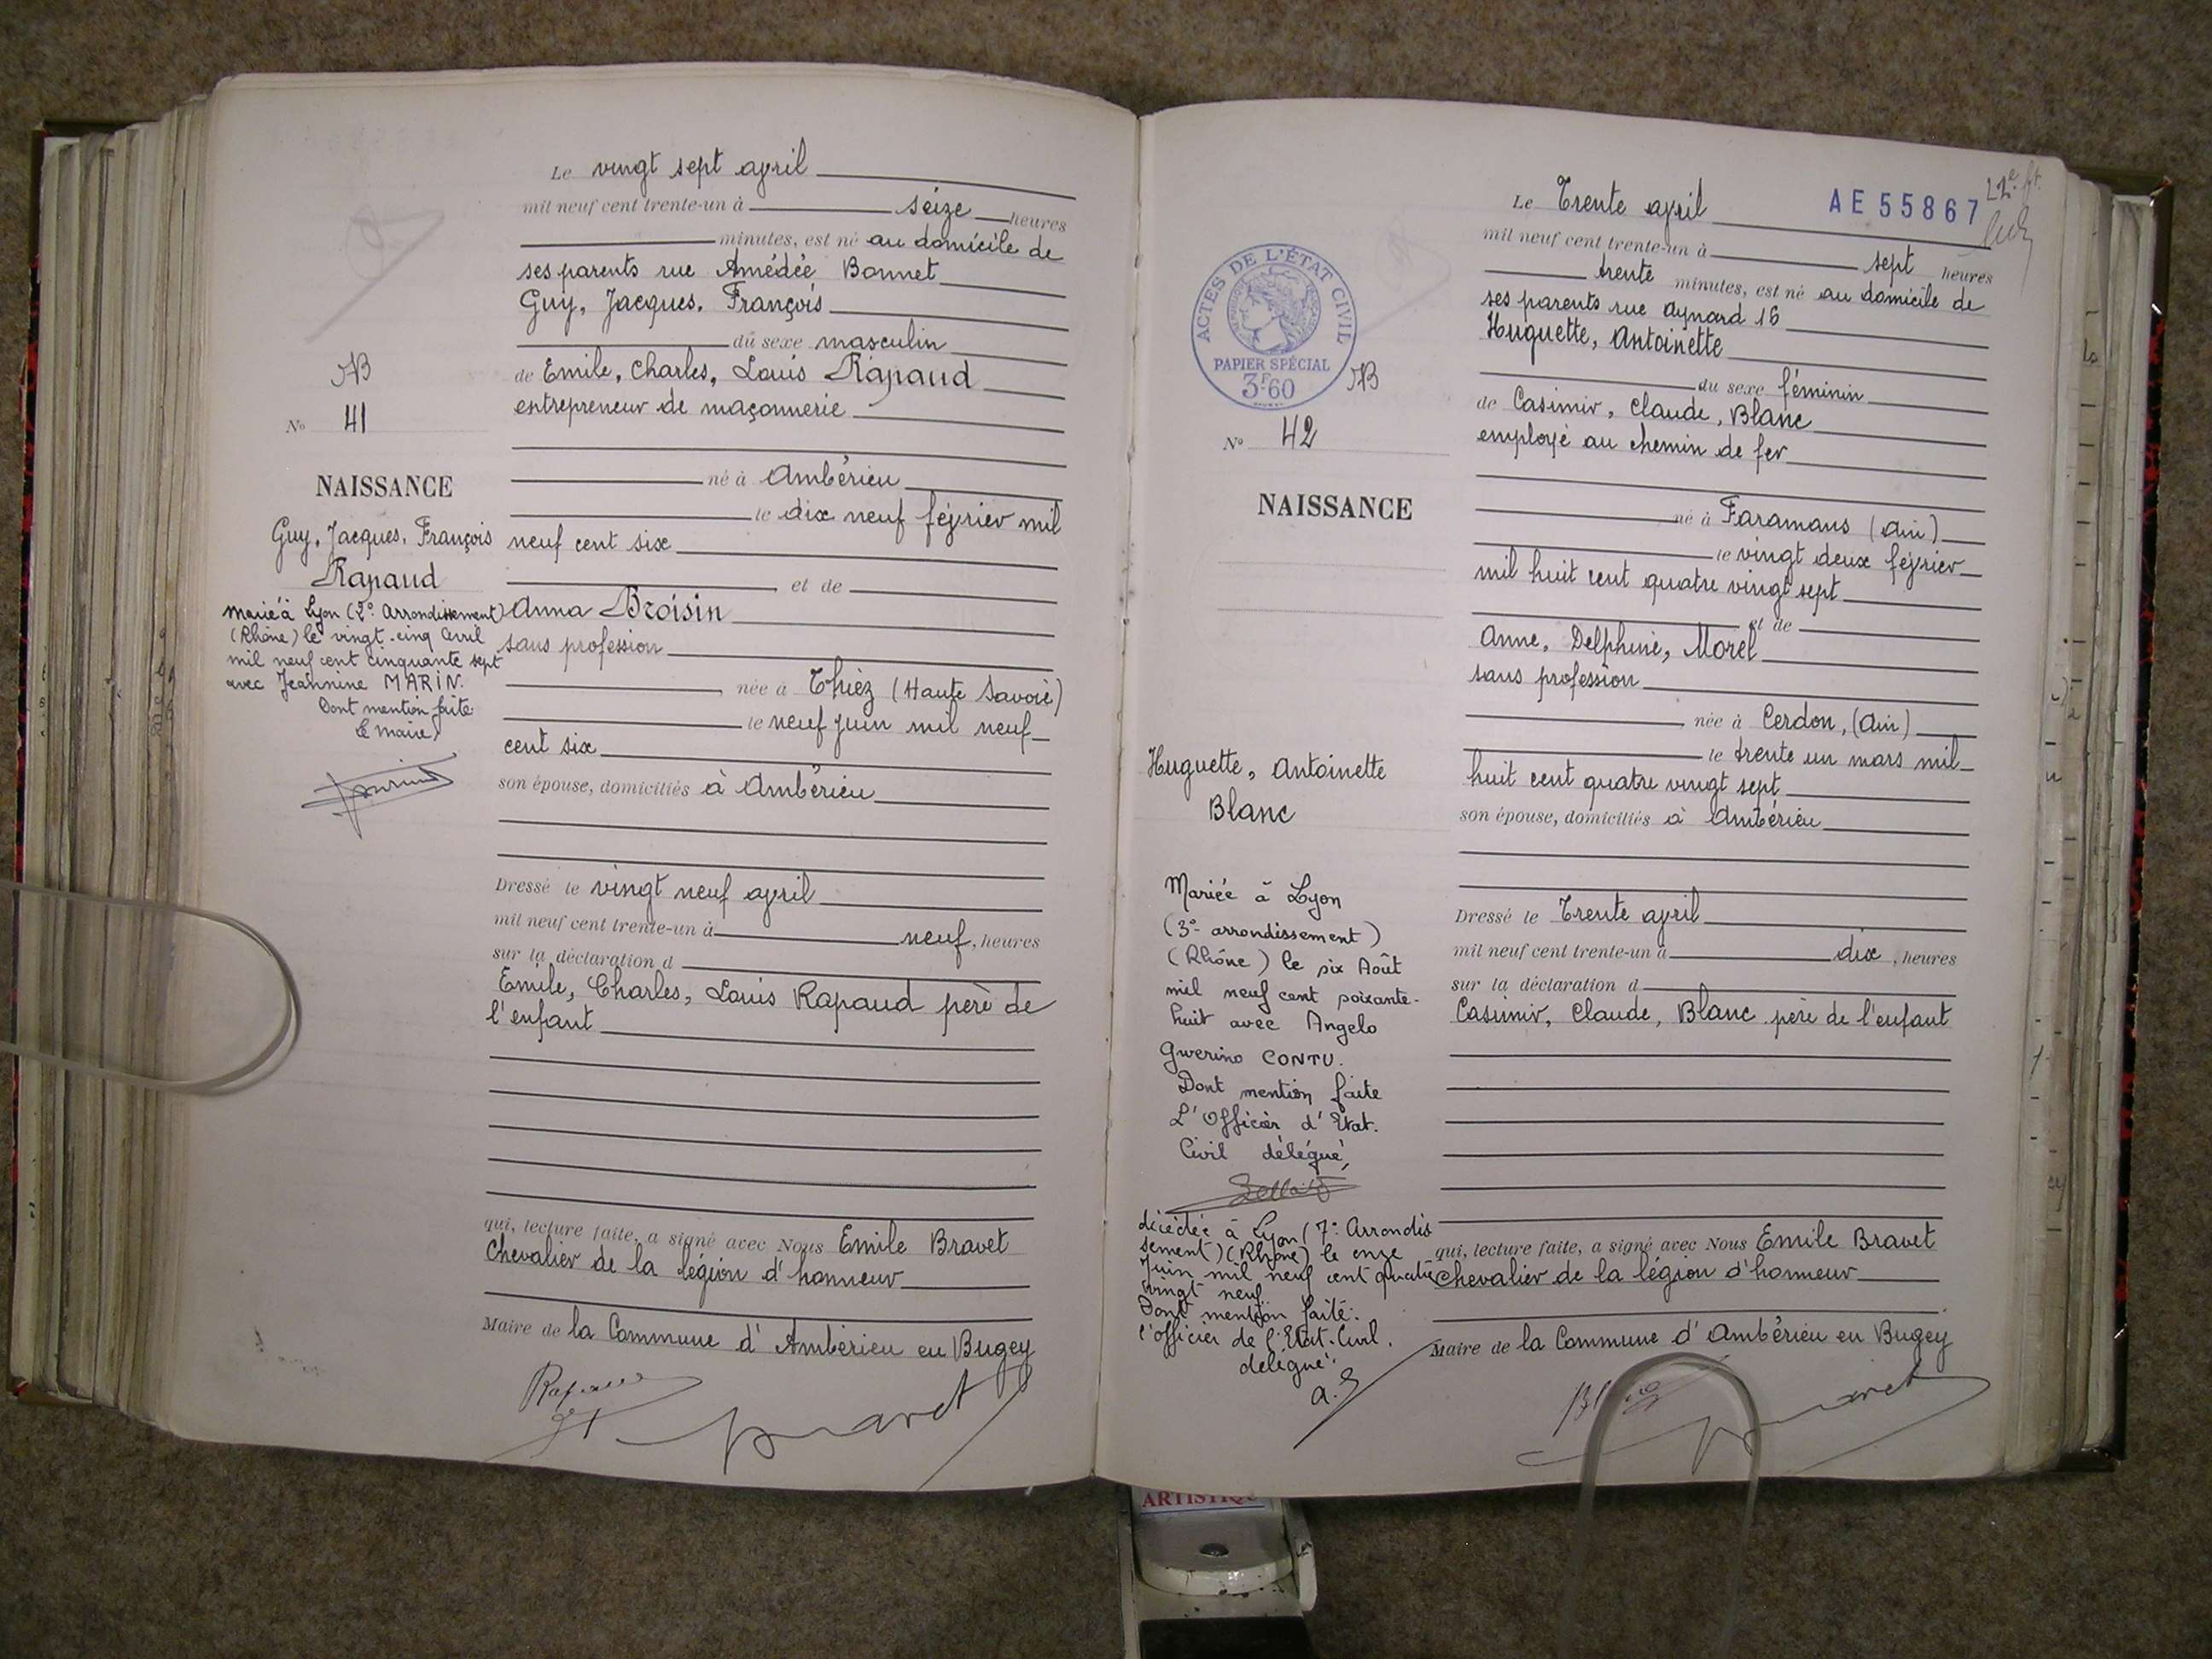 Le vingt sept avril
mil neuf cent trente-un à seize heures
minutes, est né au domicile de
ses parents rue Amédée Bonnet
Guy, Jacques, François
du sexe masculin
de Emile, Charles, Louis Rapaud
entrepreneur de maçonnerie
né à Ambérieu
le dix neuf février mil
neuf cent six
et de
Anna Broisin
sans profession
née à Thiez (Haute Savoie)
le neuf juin mil neuf
cent six
son épouse, domiciliés à Ambérieu
Dressé le vingt neuf avril
mil neuf cent trente-un à neuf, heures
sur la déclaration d
Emile, Charles, Louis Rapaud père de
l'enfant
qui, lecture faite, a signé avec Nous Emile Bravet
Chevalier de la légion d'honneur
Maire de la Commune d'Ambérieu en Bugey
No 41
NAISSANCE
Guy, Jacques, François
Rapaud
Marié à Lyon (2e Arrondissement)
(Rhône) le vingt-cinq Avril
mil neuf cent cinquante sept
avec Jeannine MARIN.
Dont mention faite
Le Maire,
Le Trente avril
AE 55867
mil neuf cent trente-un à sept heures
trente minutes, est né au domicile de
ses parents rue Aynard 16
Huguette, Antoinette
du sexe féminin
de Casimir, Claude, Blanc
employé au chemin de fer
né à Faramans (Ain)
le vingt deux février
mil huit cent quatre vingt sept
et de
Anne, Delphine, Morel
sans profession
née à Cerdon, (Ain)
le trente un mars mil
huit cent quatre vingt sept
son épouse, domiciliés à Ambérieu
Dressé le Trente avril
mil neuf cent trente-un à dix, heures
sur la déclaration d
Casimir, Claude, Blanc père de l'enfant
qui, lecture faite, a signé avec Nous Emile Bravet
Chevalier de la légion d'honneur
Maire de la Commune d'Ambérieu en Bugey
ACTES DE L'ÉTAT CIVIL
PAPIER SPÉCIAL
3F60
No 42
NAISSANCE
Huguette, Antoinette
Blanc
Mariée à Lyon
(3e arrondissement)
(Rhône) le six Août
mil neuf cent soixante-
huit avec Angelo
Gwerino CONTU.
Dont mention faite
L'Officier d'Etat.
Civil délégué,
décédée à Lyon (7e Arrondis
sement) (Rhône) le onze
Juin mil neuf cent quatre
vingt neuf.
Dont mention faite:
l'officier de l'Etat-Civil.
délégué:
ARTISTIQUE